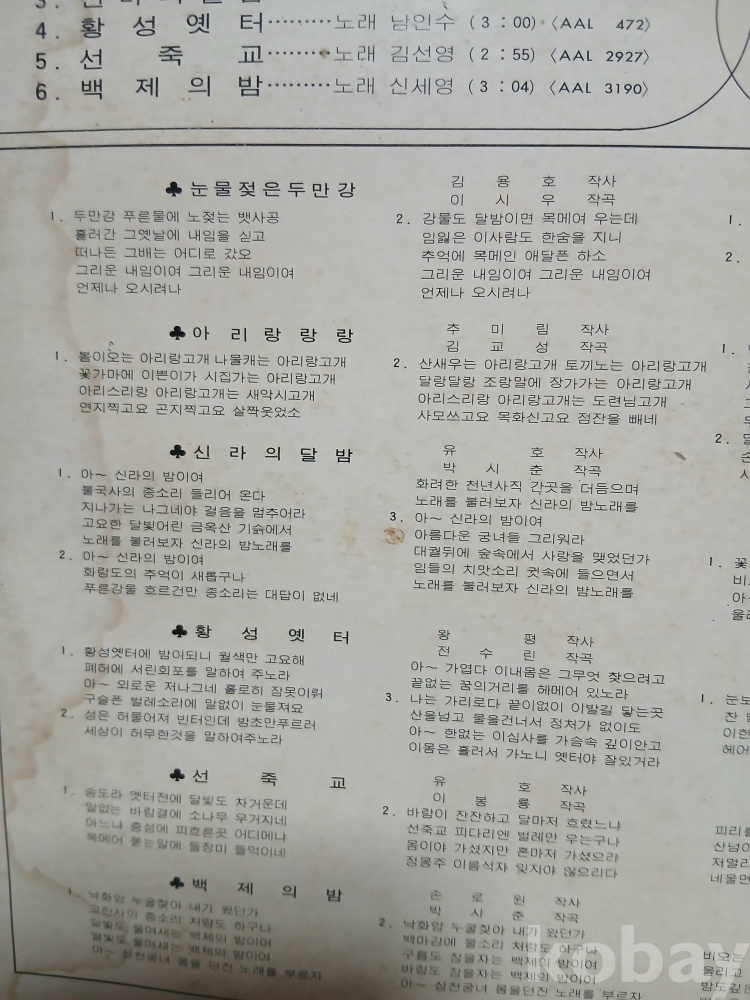 4. 황성옛터·········노래 남인수 (3 : 00) 〈AAL 472〉
5. 선죽교·········노래 김선영 (2 : 55) 〈AAL 2927〉
6. 백제의밤·········노래 신세영 (3 : 04) 〈AAL 3190〉
♣눈물젖은두만강
김용호 작사
이시우 작곡
1. 두만강 푸른물에 노젖는 뱃사공
흘러간 그옛날에 내임을 싣고
떠나든 그배는 어디로 갔오
그리운 내임이여 그리운 내임이여
언제나 오시려나
2. 강물도 달밤이면 목메여 우는데
임잃은 이사람도 한숨을 지니
추억에 목메인 애달픈 하소
그리운 내임이여 그리운 내임이여
언제나 오시려나
♣아리랑랑랑
추미림 작사
김교성 작곡
1. 봄이오는 아리랑고개 나물캐는 아리랑고개
꽃가마에 이쁜이가 시집가는 아리랑고개
아리스리랑 아리랑고개는 새악시고개
연지찍고요 곤지찍고요 살짝웃었소
2. 산새우는 아리랑고개 토끼노는 아리랑고개
달랑달랑 조랑말에 장가가는 아리랑고개
아리스리랑 아리랑고개는 도련님고개
사모쓰고요 목화신고요 점잔을 빼네
♣신라의달밤
유호 작사
박시춘 작곡
1. 아～ 신라의 밤이여
불국사의 종소리 들리어 온다
지나가는 나그네야 걸음을 멈추어라
고요한 달빛어린 금옥산 기슭에서
노래를 불러보자 신라의 밤노래를
2. 아～ 신라의 밤이여
화랑도의 추억이 새롭구나
푸른강물 흐르건만 종소리는 대답이 없네
화려한 천년사직 간곳을 더듬으며
노래를 불러보자 신라의 밤노래를
3. 아～ 신라의 밤이여
아름다운 궁녀들 그리워라
대궐뒤에 숲속에서 사랑을 맺었던가
임들의 치맛소리 귓속에 들으면서
노래를 불러보자 신라의 밤노래를
♣황성옛터
왕평 작사
전수린 작곡
1. 황성옛터에 밤이되니 월색만 고요해
폐허에 서린회포를 말하여 주노라
아～ 외로운 저나그네 홀로히 잠못이뤄
구슬픈 벌레소리에 말없이 눈물져요
2. 성은 허물어져 빈터인데 방초만푸르러
세상이 허무한것을 말하여주노라
아～ 가엽다 이내몸은 그무엇 찾으려고
끝없는 꿈의거리를 헤메어 있노라
3. 나는 가리로다 끝이없이 이발길 닿는곳
산을넘고 물을건너서 정처가 없이도
아～ 한없는 이심사를 가슴속 깊이안고
이몸은 흘러서 가노니 옛터야 잘있거라
♣선죽교
유호 작사
이봉룡 작곡
1. 송도라 옛터전에 달빛도 차거운데
말없는 바람결에 소나무 우거지네
아느냐 충성에 피흐른곳 어디메냐
목메어 묻는말에 들장미 들먹이네
2. 바람이 잔잔하고 달마저 흐렸느냐
선죽교 피다리엔 벌레만 우는구나
몸이야 가셨지만 혼마저 가셨으랴
정몽주 이름석자 잊지야 않으리다
♣백제의밤
손로원 작사
박시춘 작곡
1. 낙화암 누굴찾아 내가 왔던가
고란사의 종소리 처량도 하구나
달빛도 울어새는 백제의 밤이여
별빛도 울어새는 백제의 밤이여
아～ 삼천궁녀 몸을 던진 노래를 부르자
2. 낙화암 누굴찾아 내가 왔던가
백마강에 물소리 처량도 하구나
구름도 잠을자는 백제의 밤이여
바람도 잠을자는 백제의 밤이여
아～ 삼천궁녀 몸을던진 노래를 부르자
kobay